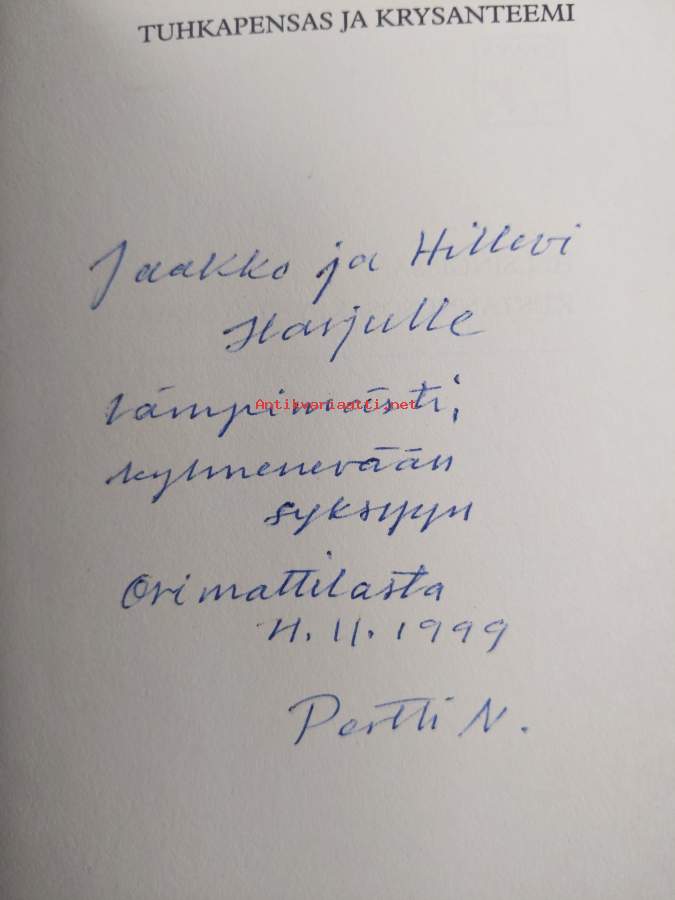 TUHKAPENSAS JA KRYSANTEEMI
Jaakko ja Hillevi
Harjulle
lämpimästi,
Antikvariaatti.net
kylmenevään
syksyyn
Orimattilasta
11.11.1999
Pertti N.